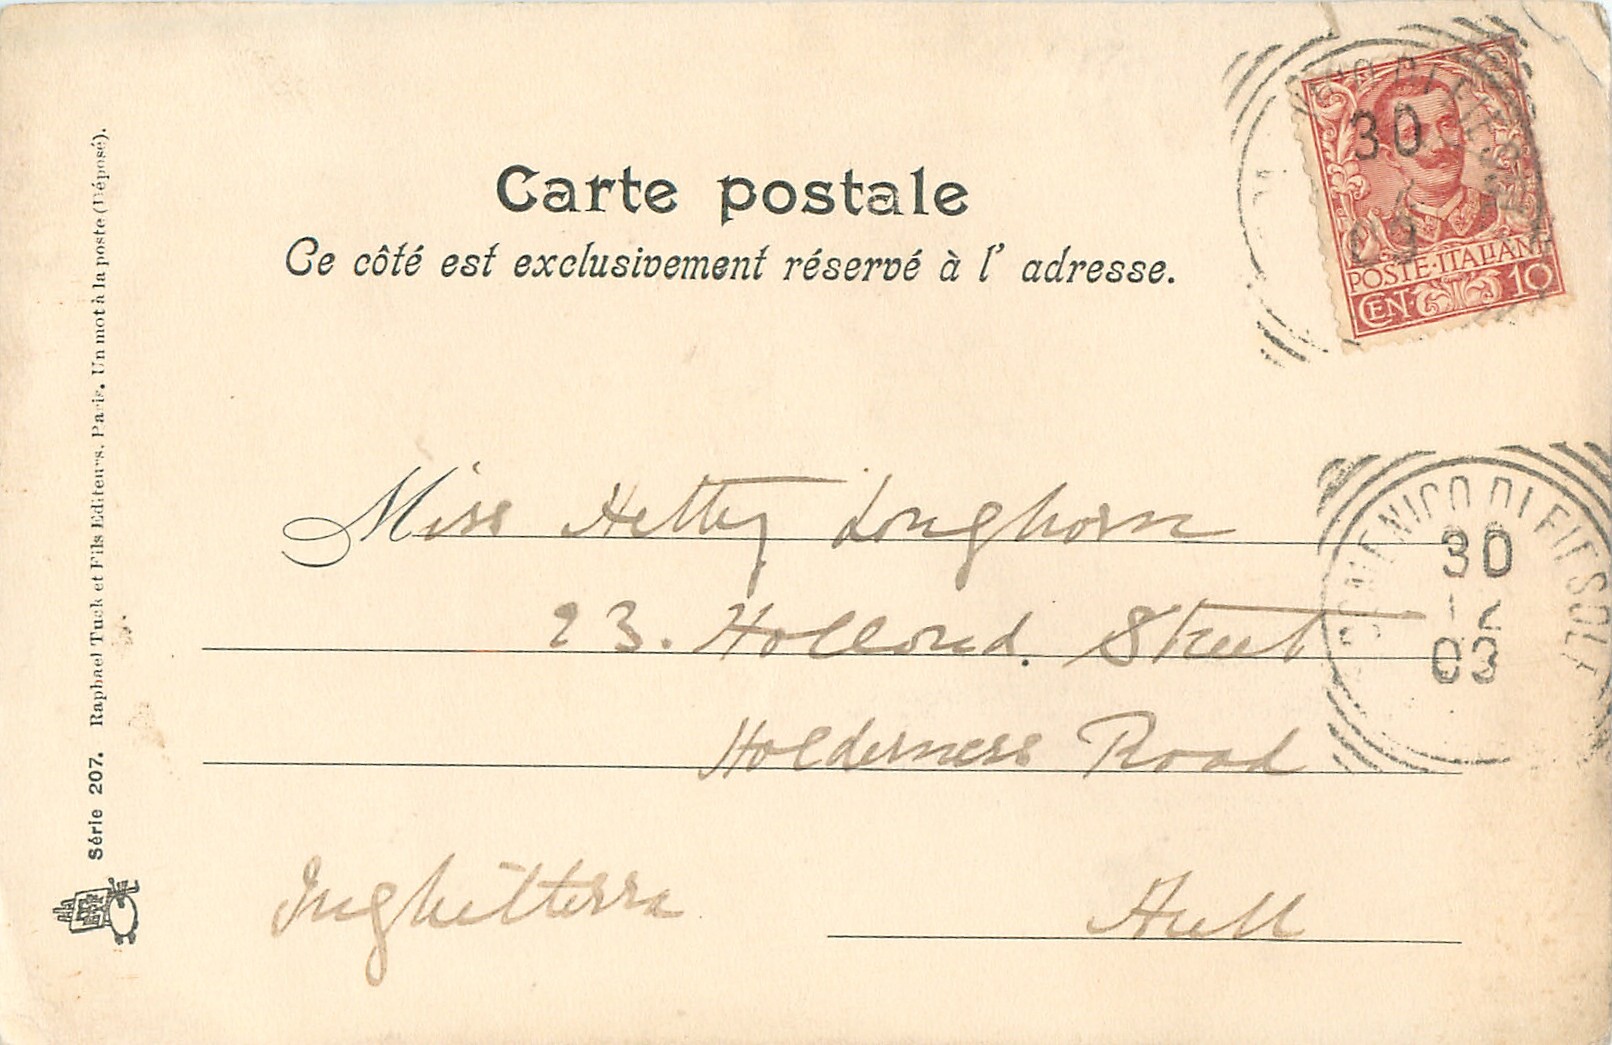 Carte postale
Ce côté est exclusivement réservé à l' adresse.
POSTE·ITALIANE
CEN 10
30
03
Miss Hetty Longhorn
23. Holland. Street
Holderness Road
Hull
Inghilterra
DOMENICO DI FIESOLE
30
12
03
Série 207. Raphael Tuck et Fils Editeurs. Paris. Un mot à la poste (Déposé).